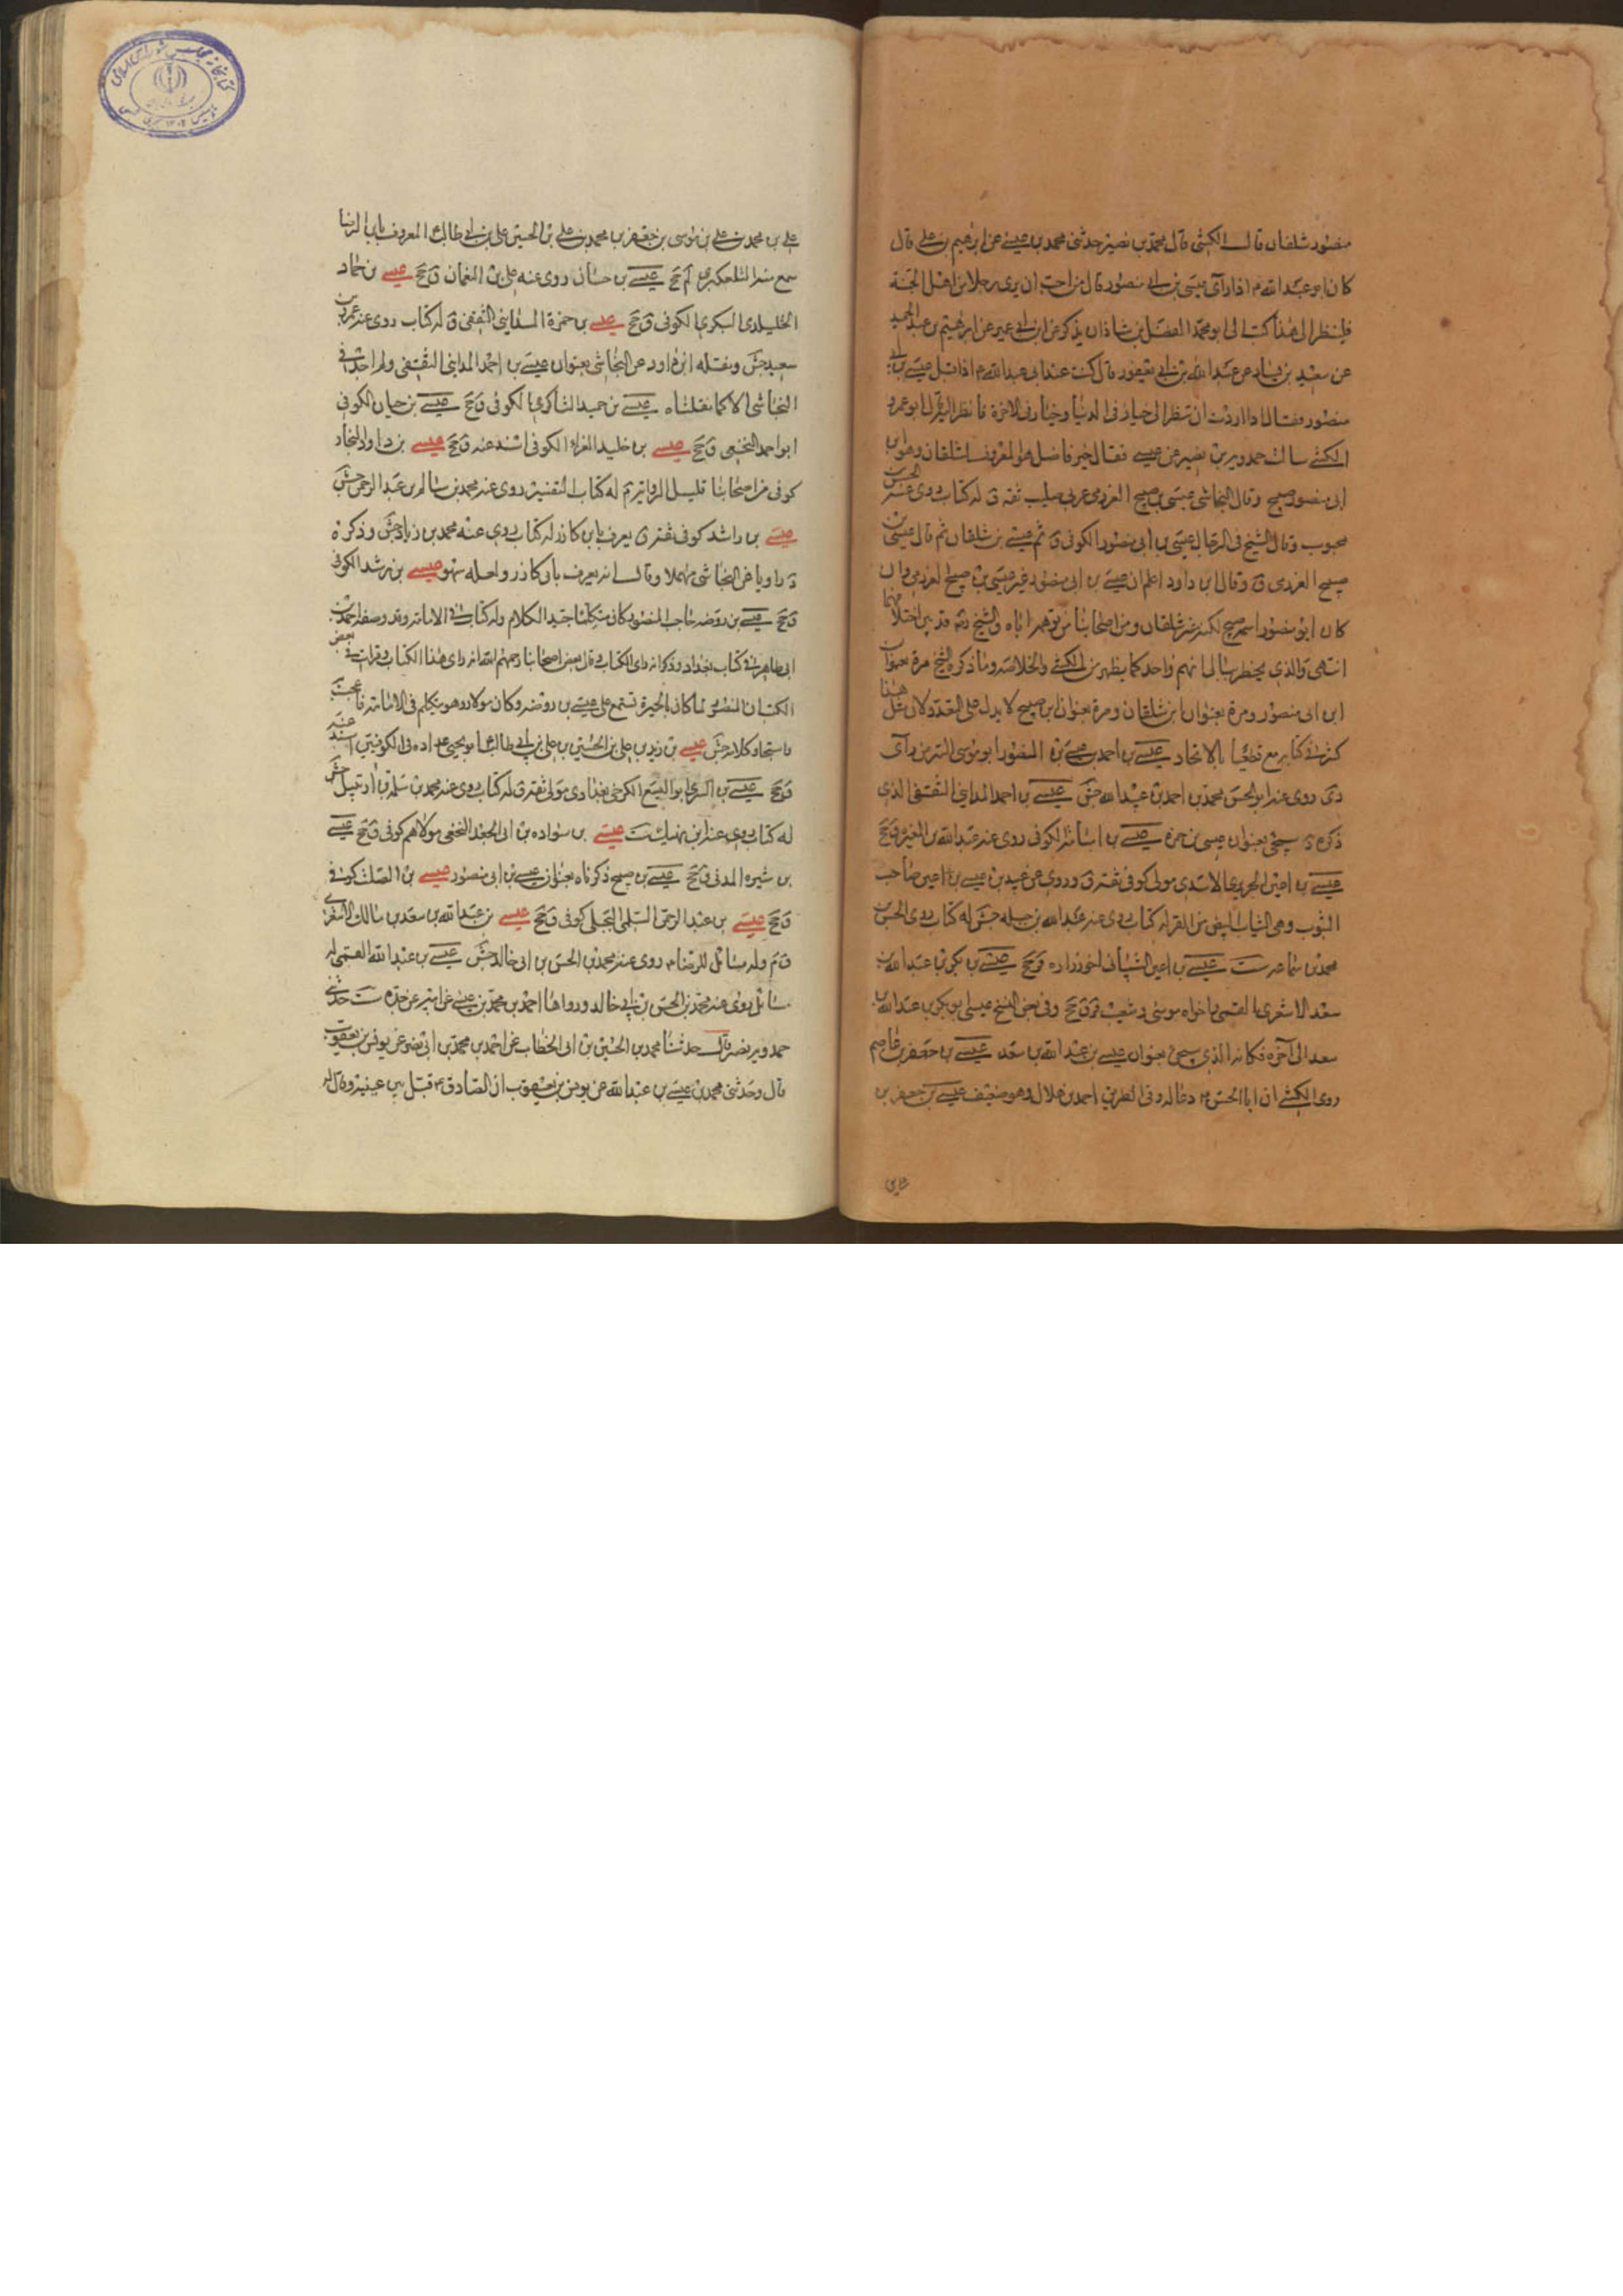 منصور شلقان قال الكشي قال محمد بن نصير حدثني محمد بن عيسى عن ابرهيم بن علي قال
كان ابو عبد الله ع اذا رآى عيسى بن ابي منصور قال من احب ان يرى رجلا من اهل الجنة
فلينظر الى هذا كتب الى ابو محمد الفضل بن شاذان يذكر عن ابن ابي عمير عن ابرهيم بن عبد الحميد
عن سعيد بن يسار عن عبد الله بن ابي يعفور قال كنت عند ابي عبد الله ع اذ اقبل عيسى بن ابي
منصور فقال اذا اردت ان تنظر الى خيار في الدنيا وخيار في الاخرة فانظر اليه قال ابو عمرو
الكشي سالت حمدويه بن نصير عن عيسى فقال خير فاضل هو المعروف بشلقان وهو ابن
ابي منصور صبيح وقال النجاشي عيسى بن صبيح العرزمي عربي صليب ثقة ق له كتاب روى عنه الحسن بن
محبوب وقال الشيخ في الرجال عيسى بن ابي منصور الكوفي ق ثم عيسى بن شلقان ثم قال عيسى بن
صبيح العرزمي ق وقال ابن داود اعلم ان عيسى بن ابي منصور غير عيسى بن صبيح العرزمي وان
كان ابو منصور اسمه صبيح لكنه غير شلقان ومن اصحابنا من توهمه اياه والشيخ رحمه قد بين اختلافهما
انتهى والذي يخطر ببالي انهم واحد كما يظهر من الكشي والخلاصة وما ذكره الشيخ مرة بعنوان
ابن ابي منصور ومرة بعنوان ابن شلقان ومرة بعنوان ابن صبيح لا يدل على التعدد لان مثل هذا
كثير في كتابه مع قطعنا بالاتحاد عيسى بن احمد بن عيسى بن المنصور ابو موسى السر من رآى
دي روى عنه ابو الحسن محمد بن احمد بن عبيد الله جش عيسى بن احمد المدايني الثقفي الذي
ذكره د سيجئ بعنوان عيسى بن حمزة عيسى بن اسامة الكوفي روى عنه عبد الله بن المغيرة ق جخ
عيسى بن اعين الجريري الاسدي مولى كوفي ثقة ق وروى عن عبيد بن عيسى بن اعين صاحب
الثوب وهي الثياب البيض من القز له كتاب روى عنه عبد الله بن جبلة جش له كتاب روى الحسن بن
محمد بن سماعة ست عيسى بن اعين الشيباني اخو زرارة ق جخ عيسى بن بكر بن عبد الله بن
سعد الاشعري القمي واخواه موسى وشعيب ق جخ وفي بعض النسخ عيسى ابو بكر بن عبد الله بن
سعد الى آخره فكانه الذي سيجئ بعنوان عيسى بن عبد الله بن سعد عيسى بن جعفر بن عاصم
روى الكشي ان ابا الحسن ع دعا له وفي الطريق احمد بن هلال وهو ضعيف عيسى بن جعفر بن
علي بن محمد بن علي بن موسى بن جعفر بن محمد بن علي بن الحسين بن علي بن ابي طالب المعروف بابن الرضا
سمع منه التلعكبري لم جخ عيسى بن حسان روى عنه علي بن النعمان ق جخ عيسى بن حماد
الخليلدي البكري الكوفي ق جخ عيسى بن حمزة المدايني الثقفي ق له كتاب روى عنه عمر بن
سعيد جش ونقله ابن داود عن النجاشي بعنوان عيسى بن احمد المدايني الثقفي ولم اجده في
النجاشي الا كما نقلناه عيسى بن حميد الشاكري الكوفي ق جخ عيسى بن حيان الكوفي
ابو احمد النخعي ق جخ عيسى بن خليد الفراء الكوفي اسند عنه ق جخ عيسى بن داود النجار
كوفي من اصحابنا قليل الرواية م له كتاب التفسير روى عنه محمد بن سالم بن عبد الرحمن جش
عيسى بن راشد كوفي ثقة ق يعرف بابن كازر له كتاب روى عنه محمد بن زياد جش وذكره
د راويا عن النجاشي مهملا وقال انه يعرف بابي كازر ولعله سهو عيسى بن رشد الكوفي
ق جخ عيسى بن روضة حاجب المنصور كان متكلما جيد الكلام وله كتاب في الامامة وقد وصفه احمد بن
ابي طاهر في كتاب بغداد وذكر انه راى الكتاب وقال بعض اصحابنا رحمهم الله انه راى هذا الكتاب وقرات في بعض
الكتب ان المنصور لما كان بالحيرة تسمع على عيسى بن روضة وكان مولاه وهو يتكلم في الامامة فاعجب به
واستجاد كلامه جش عيسى بن زيد بن علي بن الحسين بن علي بن ابي طالب ع ابو يحيى عداده في الكوفيين اسند عنه
ق جخ عيسى بن السري ابو اليسع الكرخي بغدادي مولى ثقة ق له كتاب روى عنه محمد بن سلمة بن ارتبيل جش
له كتاب روى عنه ابن نهيك ست عيسى بن سوادة بن ابي الجعد النخعي مولاهم كوفي ق جخ عيسى
بن شيره المدني ق جخ عيسى بن صبيح ذكرناه بعنوان عيسى بن ابي منصور عيسى بن الصلت كوفي
ق جخ عيسى بن عبد الرحمن السلمي البجلي كوفي ق جخ عيسى بن عبد الله بن سعد بن مالك الاشعري
ق م وله مسائل للرضا ع روى عنه محمد بن الحسن بن ابي خالد جش عيسى بن عبد الله القمي له
مسائل روى عنه محمد بن الحسن بن ابي خالد ورواها احمد بن محمد بن عيسى عن ابيه عن جده ست حدثني
حمدويه بن نصير قال حدثنا محمد بن الحسين بن ابي الخطاب عن احمد بن محمد بن ابي نصر عن يونس بن يعقوب
قال وحدثني محمد بن عيسى بن عبد الله عن يونس بن يعقوب ان الصادق ع قبل بين عينيه وقال له